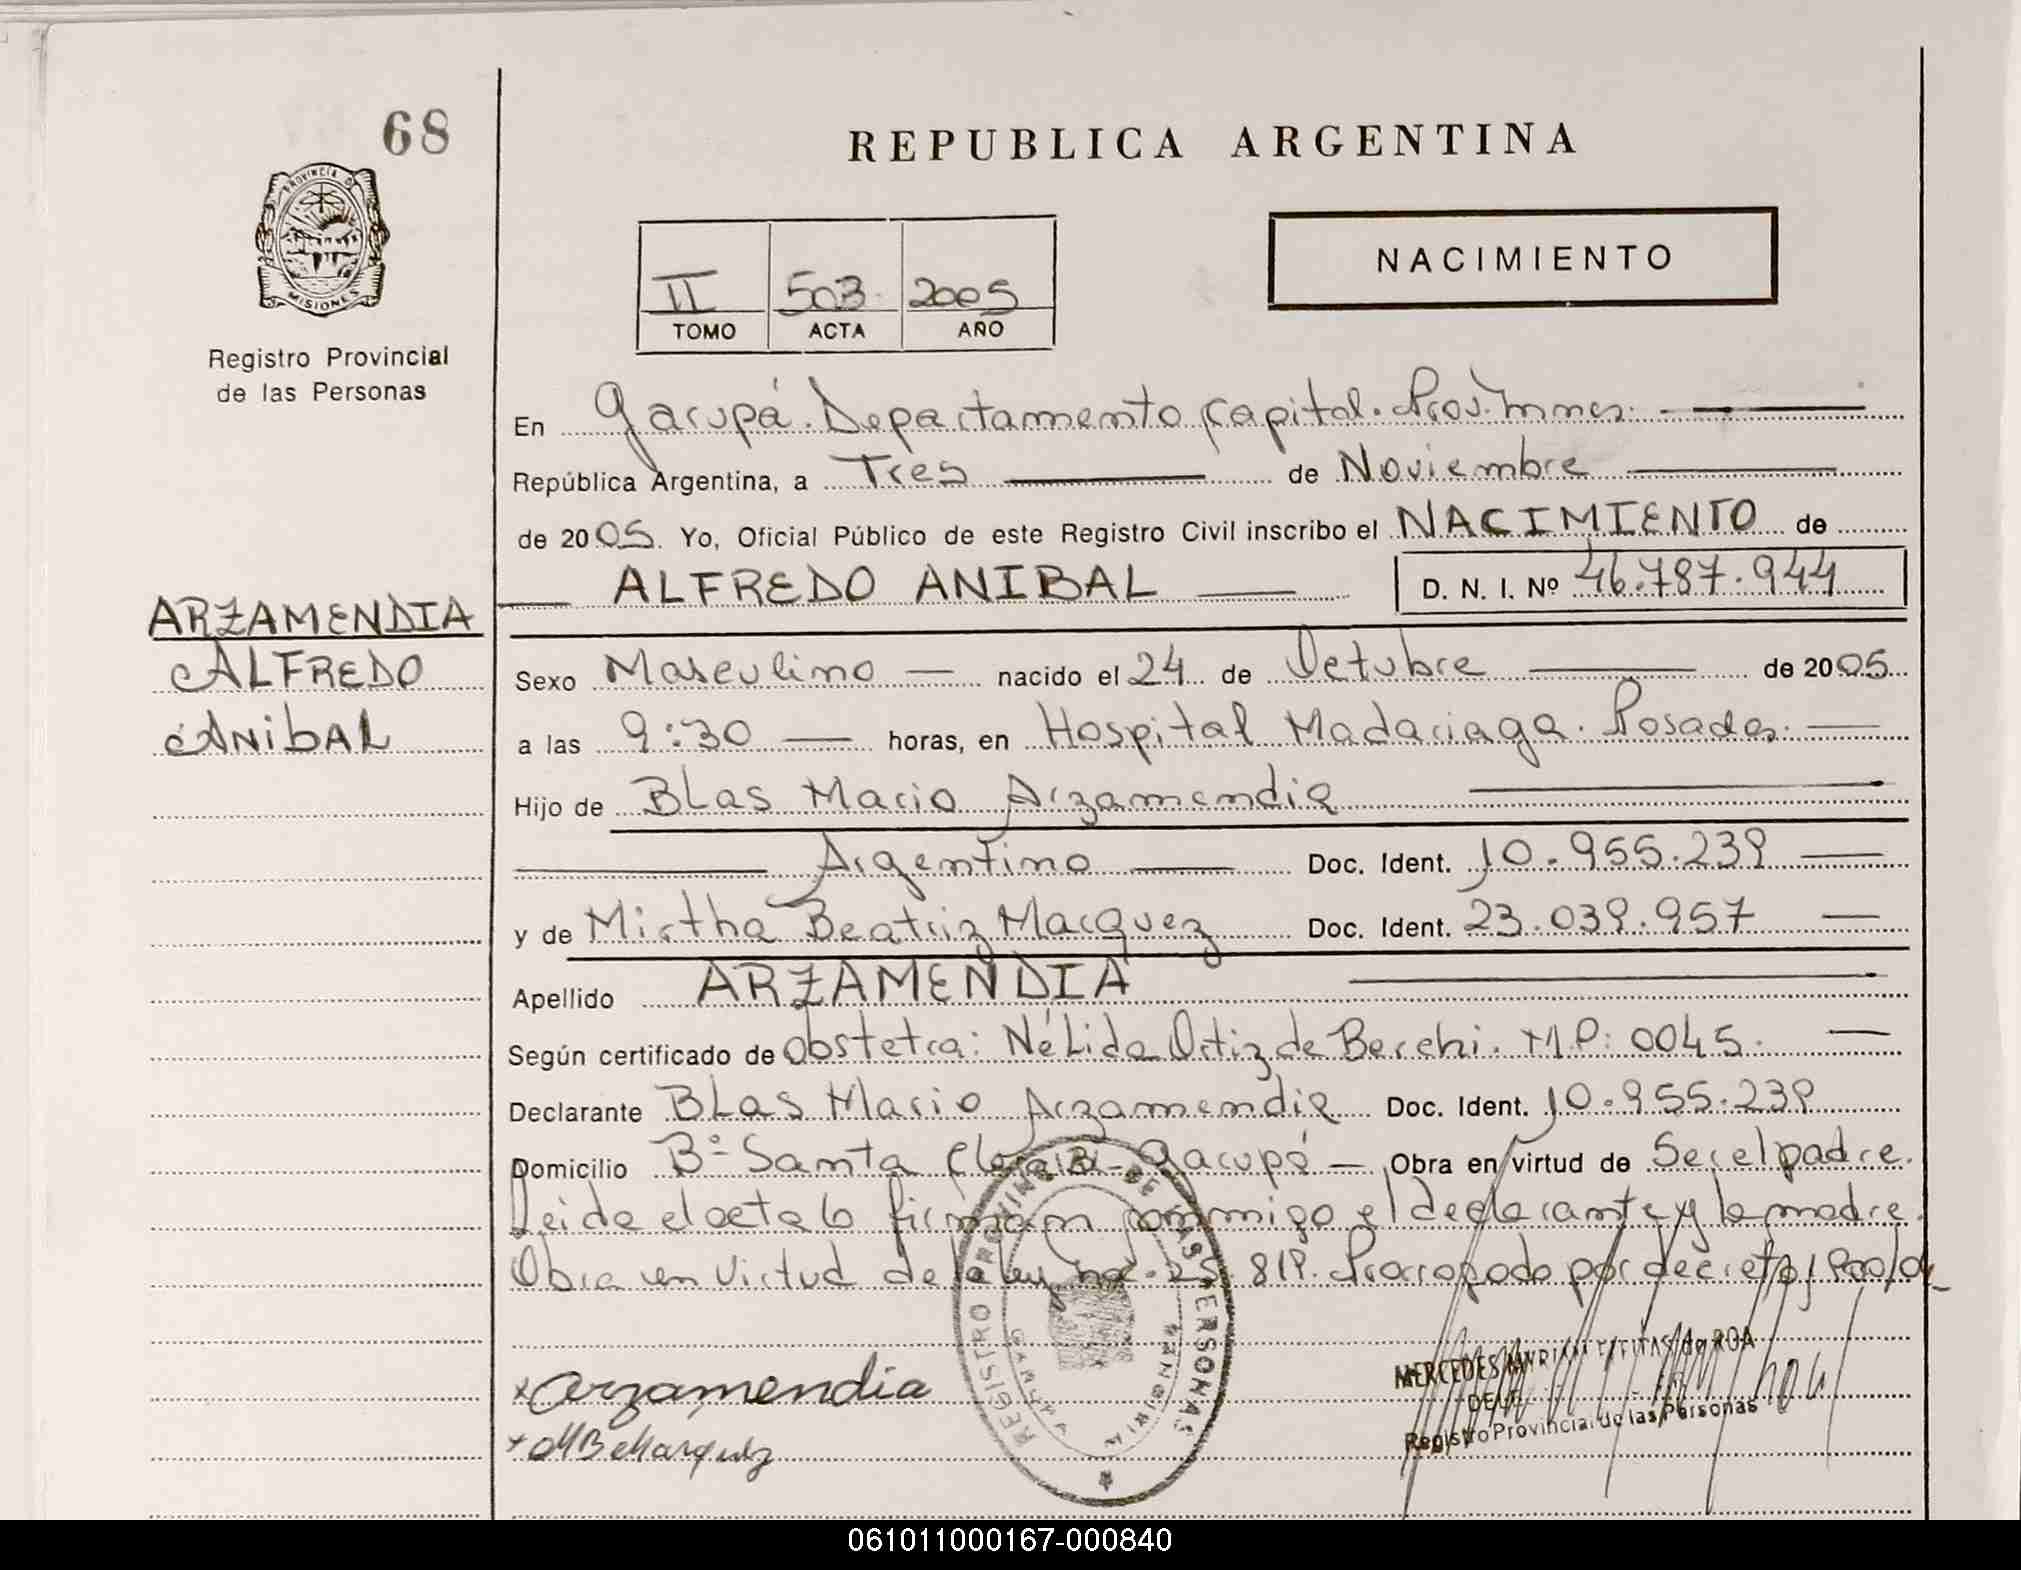 68
PROVINCIA DE
MISIONES
Registro Provincial
de las Personas
REPUBLICA ARGENTINA
NACIMIENTO
II 503 2005
TOMO ACTA AÑO
En Garupá. Departamento Capital. Prov. Mnes.
República Argentina, a Tres de Noviembre
de 2005. Yo, Oficial Público de este Registro Civil inscribo el NACIMIENTO de
ALFREDO ANIBAL D. N. I. Nº 46.787.944
ARZAMENDIA
ALFREDO
ANIBAL
Sexo Masculino nacido el 24 de Octubre de 2005
a las 9:30 horas, en Hospital Madariaga. Posadas.
Hijo de BLas Mario Arzamendia
Argentino Doc. Ident. 10.955.239
y de Mirtha Beatriz Marquez Doc. Ident. 23.039.957
Apellido ARZAMENDIA
Según certificado de obstetra: NéLida Ortiz de Berchi. M.P: 0045.
Declarante BLas Mario Arzamendia Doc. Ident. 10.955.239
Domicilio Bº Santa Clara Garupá Obra en virtud de Ser el padre.
Leida el acta la firman conmigo el declarante y la madre.
Obra en virtud de la Ley nº 25.819. Prorogado por decreto
x Arzamendia
x MB Marquez
REGISTRO PROVINCIAL DE LAS PERSONAS
MERCEDES MYRIAM de ROA
Registro Provincial de las Personas
061011000167-000840